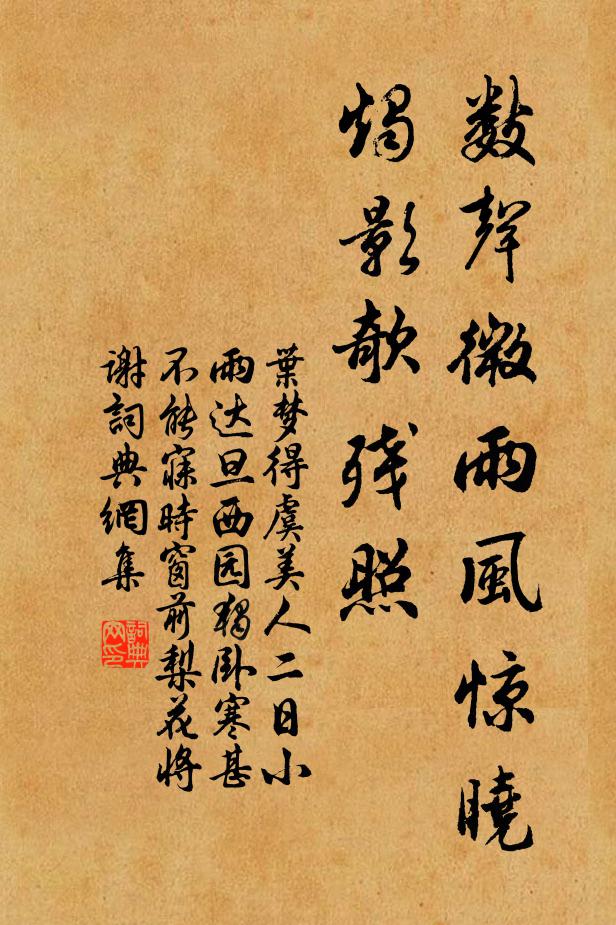 數聲微雨風惊曉
燭影欹残照
葉梦得虞美人二日小
雨达旦西园獨卧寒甚
不能寐時窗前梨花將
谢詞典網集
詞典
网印